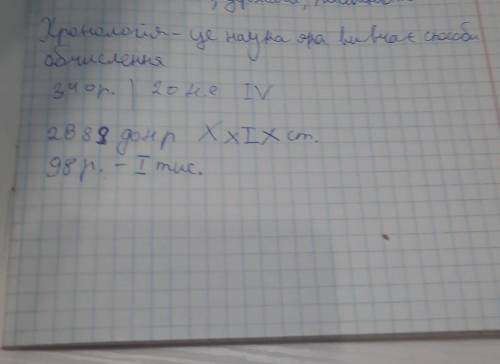 Хронологія - це наука яка вивчає способи
обчислення
340р. | 20 не IV
2889 до нр XXIX ст.
98 р. - I тис.